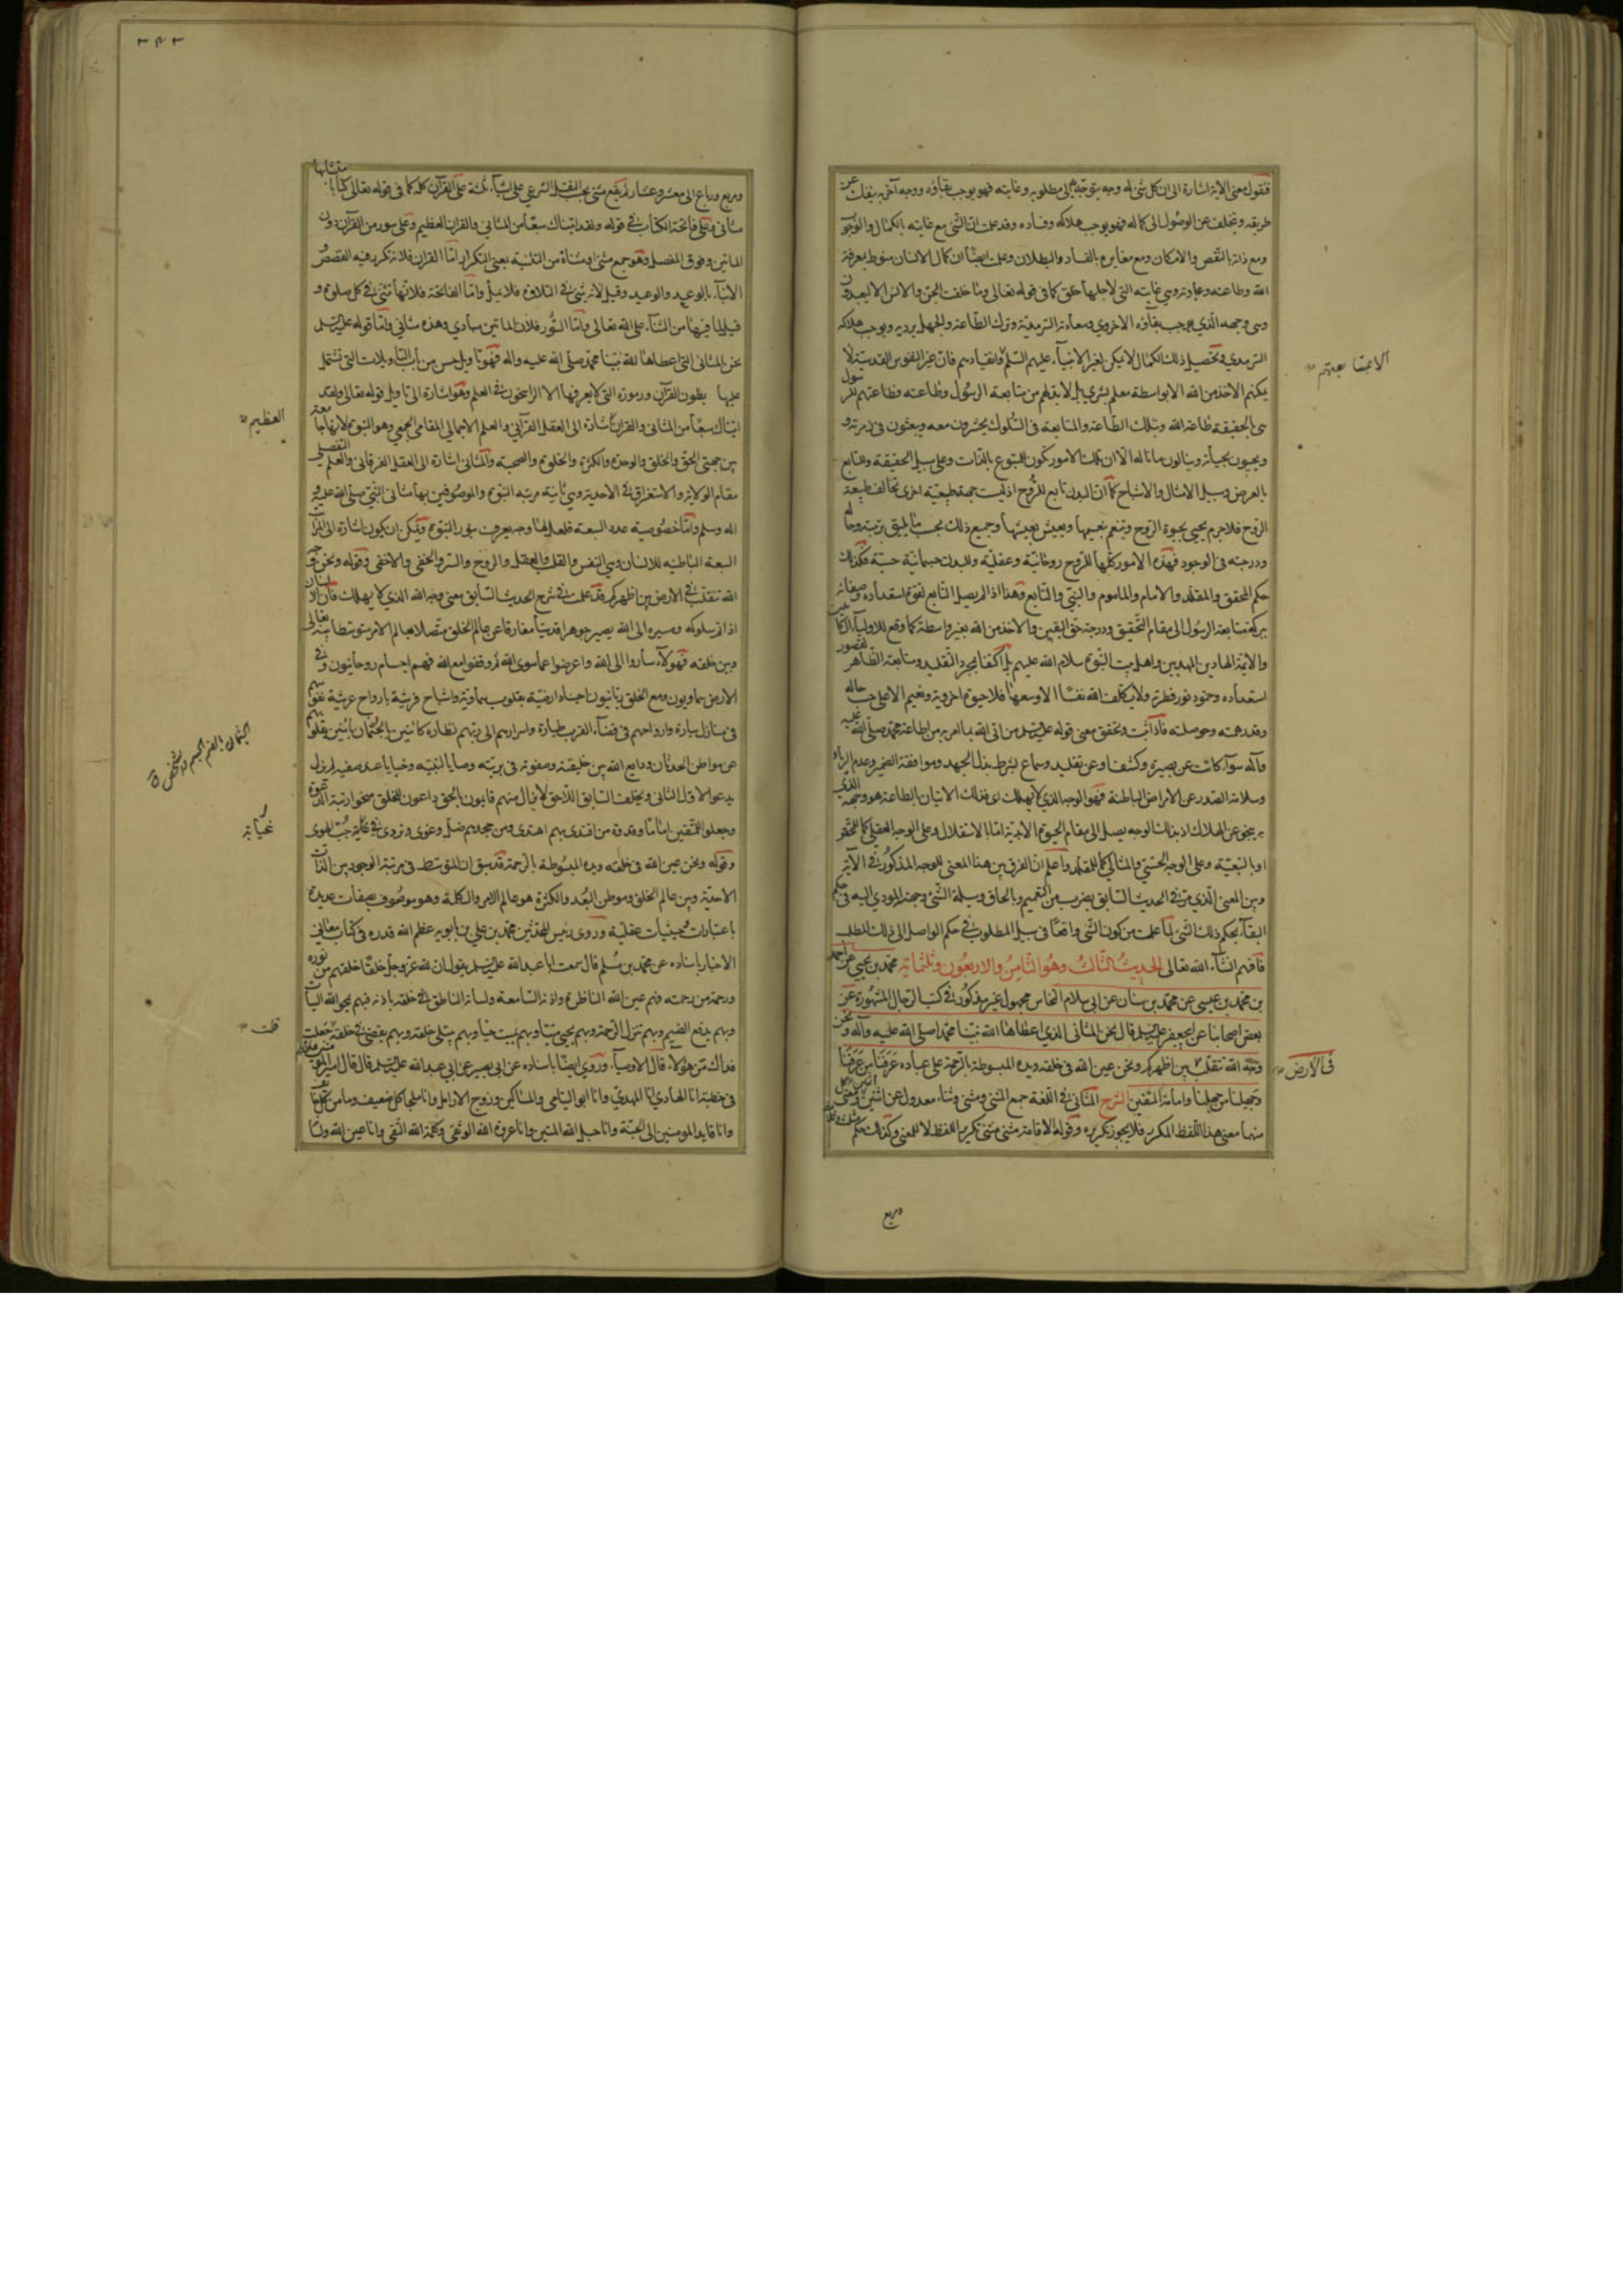 فنقول معنى الآية اشارة الى ان كل شئ له وجه يتوجه به الى مطلوبه وغايته فهو يوجب بقاؤه ووجه آخر به ينفك عن
طريقه ويتخلف عن الوصول الى كماله فهو يوجب هلاكه وفساده وقد علمت ان الشئ مع غايته بالكمال والوجوب
ومع ذاته بالنقص والامكان ومع مغايره بالفساد والبطلان وعلمت ايضا ان كمال الانسان منوط بمعرفة
الله وطاعته وعبادته وهي غايته التي لاجلها خلق كما في قوله تعالى وما خلقت الجن والانس الا ليعبدون
وهي وجهه الذي يوجب بقاؤه الاخروي وسعادته السرمدية وترك الطاعة والجهل يرديه ويوجب هلاكه
السرمدي وتحصيل ذلك الكمال لا يمكن لغير الانبياء عليهم السلم وانقيادهم فان غير النفوس القدسية لا
الا بمتابعتهم
يمكنهم الاخذ من الله الا بواسطة معلم بشري بل لا بد لهم من متابعة الرسول وطاعته وطاعتهم للرسول
هي الحقيقة طاعة الله وبتلك الطاعة والمتابعة في السلوك يحشرون معه ويبعثون في زمرته و
ويحيون بحياته وينالون ما ناله الا ان تلك الامور تكون للمتبوع بالذات وعلى سبيل الحقيقة وللتابع
بالعرض وسبيل الامثال والاشباح كما ان البدن تابع للروح اذ ليست جهة طبيعته اخرى تخالف طبيعة
الروح فلا جرم يحيى بحيوة الروح وتنعم بنعيمها ويعيش بعيشها وجميع ذلك بحسب ما يليق برتبته وحاله
ودرجته في الوجود فهذه الامور كلها للروح روحانية وعقلية وللبدن جسمانية حسية فكذلك
حكم المحقق والمقلد والامام والماموم والنبي والتابع وهذا اذا لم يصل التابع لقوة استعداده وصفائه
ببركة متابعة الرسول الى مقام التحقيق ودرجة حق اليقين والاخذ من الله بغير واسطة كما وقع للاولياء الكاملين
والائمة الهادين المهديين واهل بيت النبوة سلام الله عليهم بل اكتفى بمجرد التقليد ومتابعة الظاهر لقصور
استعداده وخمود نور فطرته ولا يكلف الله نفسا الا وسعها فلا حيوة اخروية ونعيم الا على حسب حاله
وقدر همته وحوصلته فاذا ثبت وتحقق معنى قوله عليه السلم من اتى الله بما امر به من اطاعة محمد صلى الله عليه
وآله سواء كانت عن بصيرة وكشف او عن تقليد وسماع بشرط بذل الجهد وموافقة الضمير وعدم الرياء
وسلامة الصدر عن الامراض الباطنة فهو الوجه الذي لا يهلك اى فذلك الاتيان بالطاعة هو وجهه الذي
به ينجو عن الهلاك اذ بذلك الوجه يصل الى مقام الحيوة الابدية اما بالاستقلال وعلى الوجه العقلي كما للمحقق
او بالتبعية وعلى الوجه الحسي والمثالي كما للمقلد واعلم ان الفرق بين هذا المعنى للوجه المذكور في الآية
وبين المعنى الذي مر في الحديث السابق بضرب من التعميم وبالحاق وسيلة الشئ وجهة المودي اليه في حكم
البقاء بحكم ذلك الشئ لما علمت من كون الشئ واقعا في سبيل المطلوب في حكم الواصل الى ذلك المطلب
فافهم انشاء الله تعالى الحديث الثالث وهو الثامن والاربعون وثلثمائة محمد بن يحيى عن احمد
بن محمد بن عيسى عن محمد بن سنان عن ابي سلام النخاس مجهول غير مذكور في كتب الرجال المشهورة عن
بعض اصحابنا عن ابي جعفر عليه السلم قال نحن المثاني الذي اعطاها الله نبينا محمدا صلى الله عليه وآله ونحن
وجه الله نتقلب بين اظهركم ونحن عين الله في خلقه ويده المبسوطة بالرحمة على عباده عرفنا من عرفنا
في الارض
وجهلنا من جهلنا وامامة المتقين الشرح المثاني في اللغة جمع المثنى ومثنى وثناء معدول عن اثنين اثنين ومعنى
منهما معنى هذا اللفظ المكرر فلا يجوز تكريره وقوله الاقامة مثنى مثنى تكرير اللفظ لا للمعنى وكذلك حكم
ومربع
٣٤٣
ومربع ورباع الى معشر وعشار لم يقع مثنى بحسب النقل الشرعي على اشياء ثلثة على القرآن كله كما في قوله تعالى كتابا متشابها
مثاني وعلى فاتحة الكتاب في قوله ولقد اتيناك سبعا من المثاني والقرآن العظيم وعلى سور من القرآن دون
المائين وفوق المفصل وهو جمع مثنى او مثناة من التثنية بمعنى التكرار اما القرآن فلانه تكرر فيه القصص
الانباء والوعد والوعيد وقيل لانه يثنى في التلاوة فلا يمل واما الفاتحة فلانها تثنى في كل صلوة و
قيل لما فيها من الثناء على الله تعالى واما السور فلان المائين مبادي وهذه مثاني واما قوله عليه السلم
نحن المثاني التي اعطاها الله نبينا محمد صلى الله عليه واله فهو تاويل حسن من باب التاويلات التي تشتمل
عليها بطون القرآن ورموزه التي لا يعرفها الا الراسخون في العلم وهو اشارة الى تاويل قوله تعالى ولقد
اتيناك سبعا من المثاني والقرآن اشارة الى العقل القرآني والعلم الاجمالي المقامي الجمعي وهو النبوة لانها جامعة
العظيم
بين جهتي الحق والخلق والوحدة والكثرة والخلوة والصحبة والمثاني اشارة الى العقل الفرقاني والعلم التفصيلي
مقام الولاية والاستغراق في الاحدية وهي ثانية مرتبة النبوة والموصوفين بها مثاني النبي صلى الله عليه و
اله وسلم واما خصوصية عدد السبعة فلعل لها وجه يعرف بنور النبوة ويمكن ان يكون اشارة الى المراتب
السبعة الباطنية للانسان وهي النفس والقلب والعقل والروح والسر والخفي والاخفى وقوله ونحن وجه
الله نتقلب في الارض بين اظهركم قد علمت في شرح الحديث السابق معنى وجه الله الذي لا يهلك فان الانسان
اذا تم سلوكه ومسيره الى الله يصير جوهرا قدسيا مفارقا عن عالم الخلق متصلا بعالم الامر متوسطا بينه تعالى
وبين خلقه فهولاء ساروا الى الله واعرضوا عما سوى الله ثم وقفوا مع الله فهم اجسام روحانيون وفي
الارض سماويون ومع الخلق ربانيون اجساد ارضية بقلوب سماوية واشباح فرشية بارواح عرشية نفوسهم
في منازل سيارة وارواحهم في فضاء القرب طيارة واسرارهم الى ربهم نظارة كائنين بالجثمان بائنين بقلوبهم
الجثمان بالضم الجسم والشخص
عن مواطن الحدثان ودايع الله بين خليقته وصفوته في بريته وصايا لنبيه وخبايا عند صفيه لم يزل
يدعو الاول الثاني ويخلف السابق اللاحق لا يزال منهم قايمون بالحق داعون للخلق منحوا رتبة الدعوة
وجعلوا للمتقين اماما وقدوة من اقتدى بهم اهتدى ومن جحدهم ضل وغوى وتردى في غيابة جب الهوى
غيابة
وقوله ونحن عين الله في خلقه ويده المبسوطة بالرحمة قد سبق ان المتوسط في مرتبة الوجود بين الذات
الاحدية وبين عالم الخلق وموطن البعد والكثرة هو عالم الامر والكلمة وهو موصوف بصفات عديدة
باعتبارات وحيثيات عقلية وروى رئيس المحدثين محمد بن علي بن بابويه عظم الله قدره في كتاب معاني
الاخبار باسناده عن محمد بن مسلم قال سمعت ابا عبد الله عليه السلم يقول ان لله عز وجل خلقا خلقهم من نوره
ورحمة من رحمته فهم عين الله الناظرة واذنه السامعة ولسانه الناطق في خلقه باذنه فبهم يمحو الله السيآت
وبهم يدفع الضيم وبهم تنزل الرحمة وبهم يحيي ميتا وبهم يميت حيا وبهم يبتلى خلقه وبهم يقضى في خلقه جعلت
قلت
فداك من هولاء قال الاوصياء وروي ايضا باسناده عن ابي بصير عن ابي عبد الله عليه السلم قال قال امير المؤمنين
في خطبته انا الهادي انا المهدي وانا ابو اليتامى والمساكين وزوج الارامل وانا ملجا كل ضعيف ومامن كل خائف
وانا قايد المومنين الى الجنة وانا حبل الله المتين وانا عروة الله الوثقى وكلمة الله التقى وانا عين الله ولسا